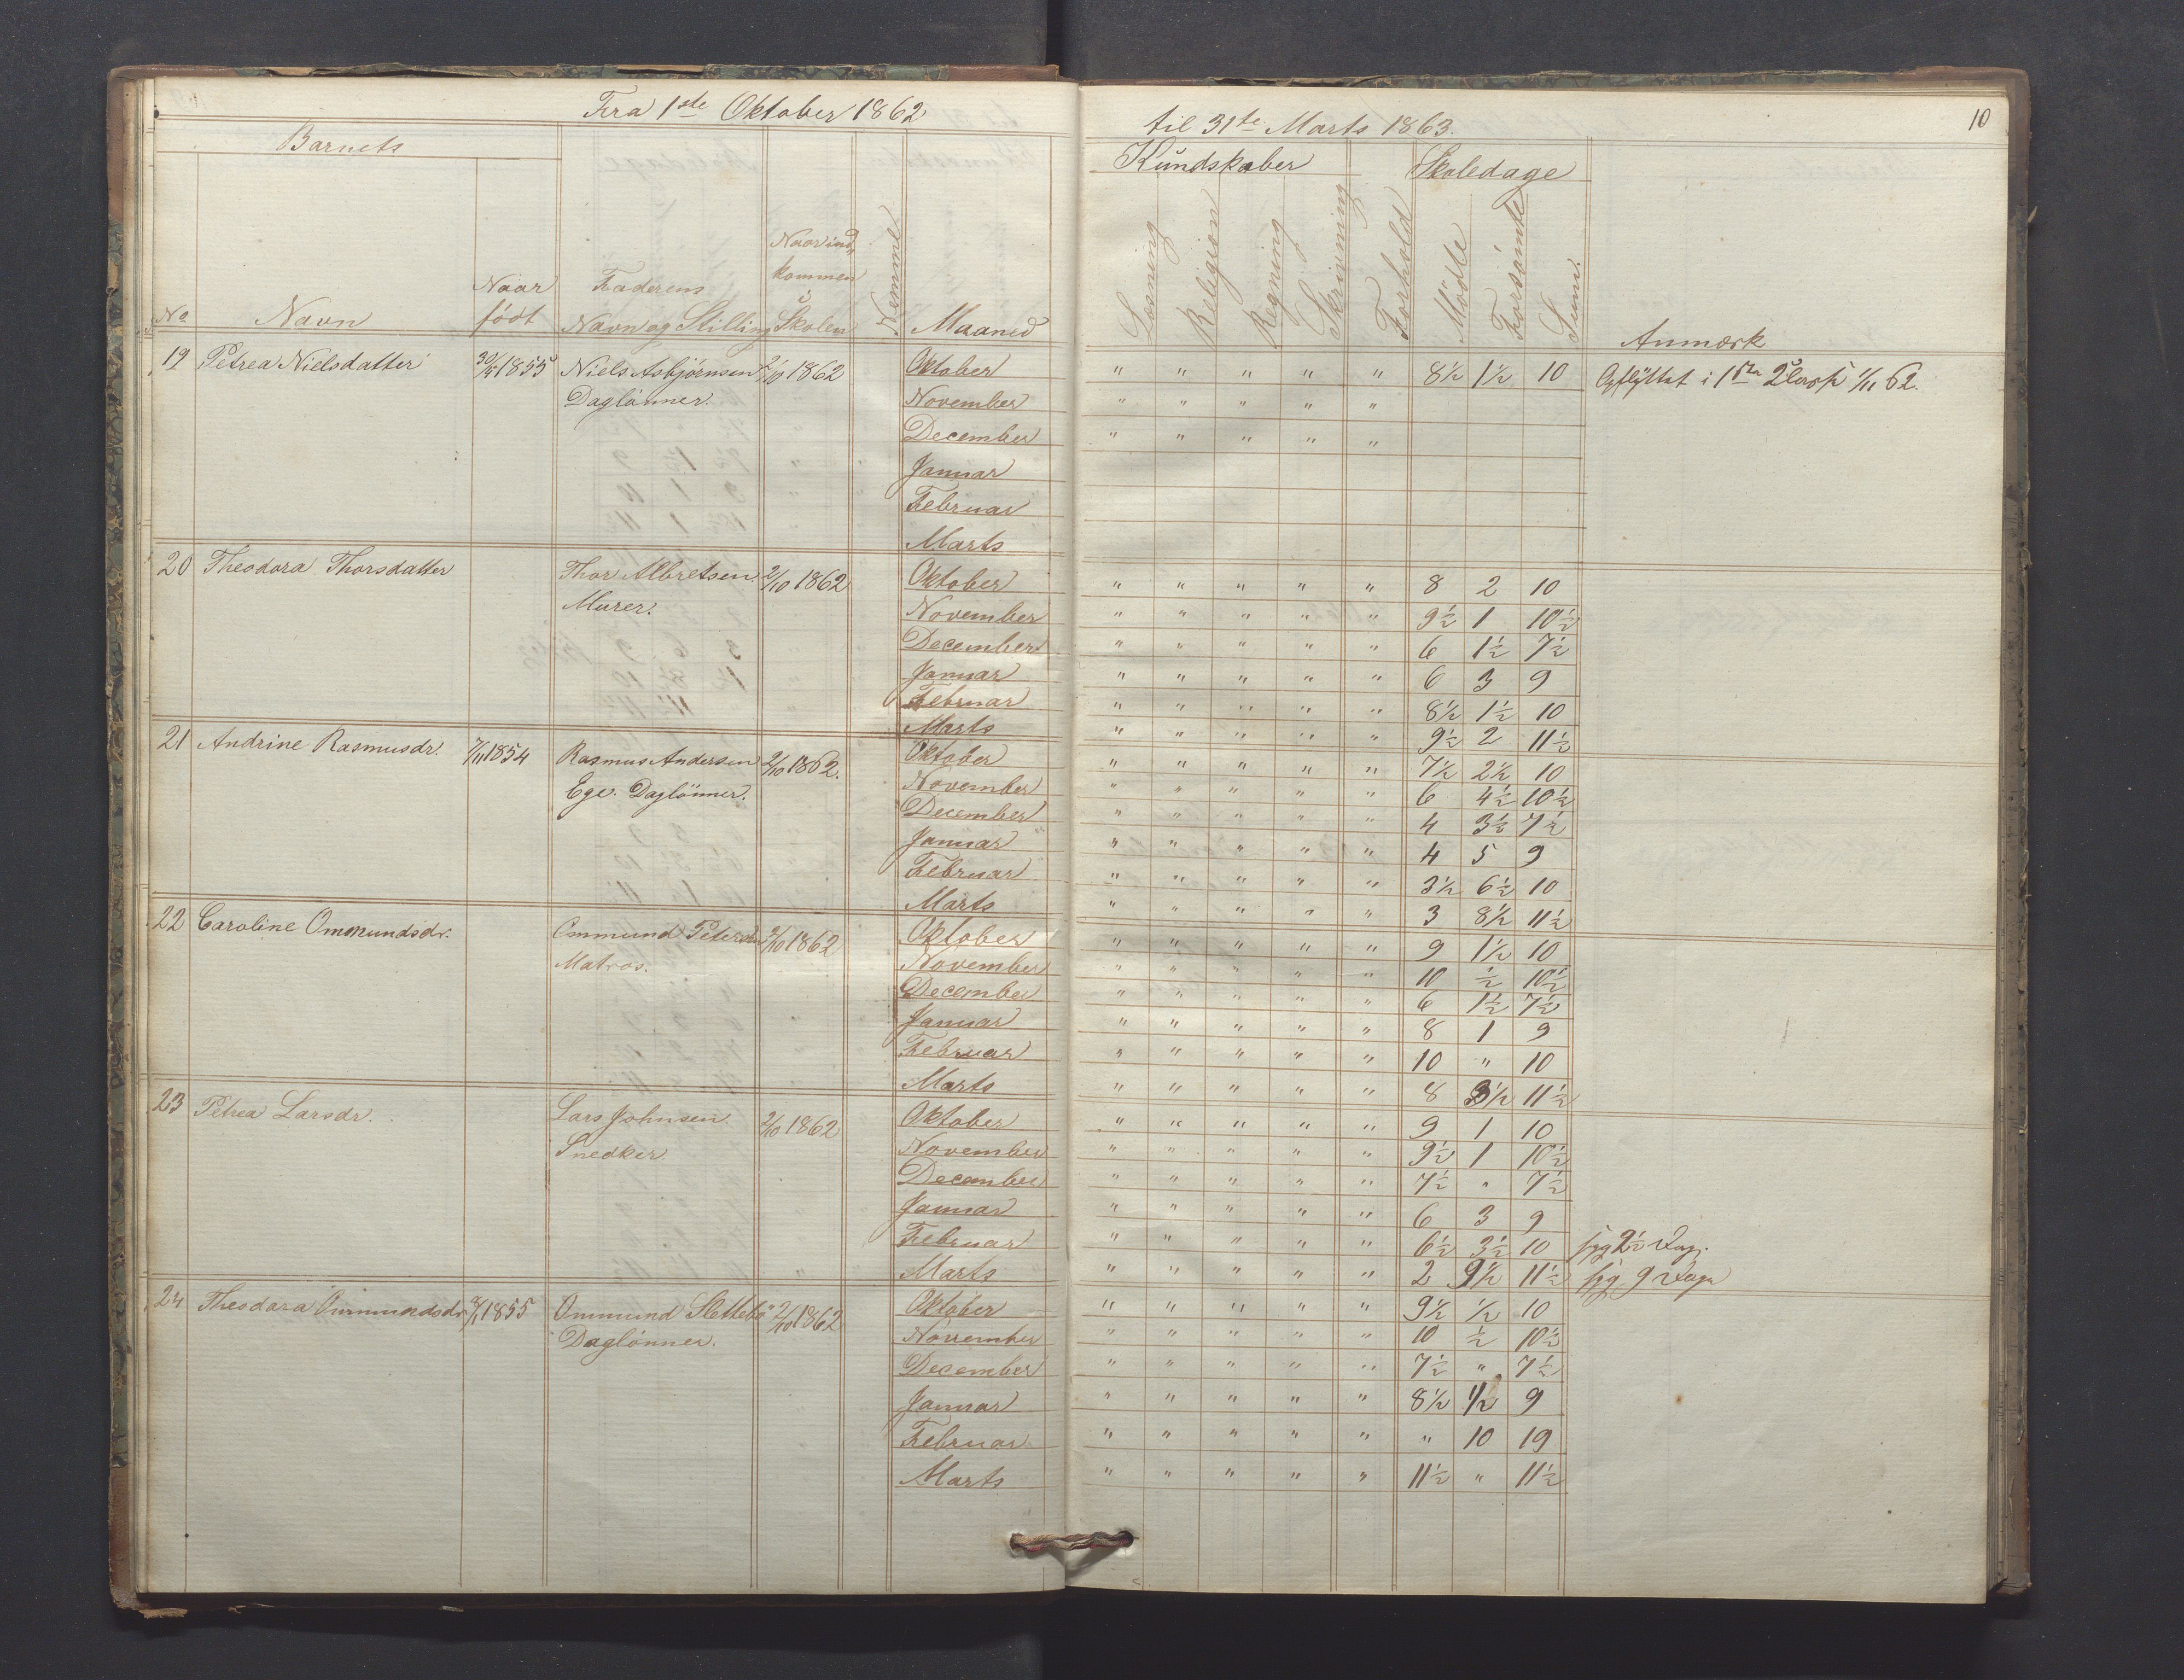 Fra 1ste Oktober 1862
til 31te Marts 1863.
10
Barnets
Kundskaber
Skoledage
No
Navn
Naar født
Faderens Navn og Stilling
Naar ind kommen i Skolen
Nemme
Maaned
Læsning
Religion
Regning
Skrivning
Forhold
Mødte
Forsømte
Sum.
Anmærk
19 Petrea Nielsdatter 30/4 1855 Niels Asbjørnsen 2/10 1862 Oktober " " " " " 8½ 1½ 10 Opflyttet i 1ste 1/11 62.
Daglønner. November " " " " "
December " " " " "
Januar
Februar
Marts
20 Theodora Thorsdatter Thor Albretsen 2/10 1862 Oktober " " " " " 8 2 10
Murer. November " " " " " 9½ 1 10½
December " " " " " 6 1½ 7½
Januar " " " " " 6 3 9
Februar " " " " " 8½ 1½ 10
Marts " " " " " 9½ 2 11½
21 Andrine Rasmusdr. 7/11 1854 Rasmus Andersen 2/10 1862. Oktober " " " " " 7½ 2½ 10
Ege. Daglønner. November " " " " " 6 4½ 10½
December " " " " " 4 3½ 7½
Januar " " " " " 4 5 9
Februar " " " " " 3½ 6½ 10
Marts " " " " " 3 8½ 11½
22 Caroline Ommundsdr. Ommund Petersen 2/10 1862 Oktober " " " " " 9 1½ 10
Matros. November " " " " " 10 ½ 10½
December " " " " " 6 1½ 7½
Januar " " " " " 8 1 9
Februar " " " " " 10 " 10
Marts " " " " " 8 3½ 11½
23 Petrea Larsdr. Lars Johnsen 2/10 1862 Oktober " " " " " 9 1 10
Snedker. November " " " " " 9½ 1 10½
December " " " " " 7½ " 7½
Januar " " " " " 6 3 9
Februar " " " " " 6½ 3½ 10 syg 2½ Dag.
Marts " " " " " 2 9½ 11½ syg 9 Dage
24 Theodora Ommundsdr. 1855 Ommund Slettebø 2/10 1862 Oktober " " " " " 9½ ½ 10
Daglønner. November " " " " " 10 ½ 10½
December " " " " " 7½ " 7½
Januar " " " " " 8½ ½ 9
Februar " " " " " " 10 19
Marts " " " " " 11½ " 11½